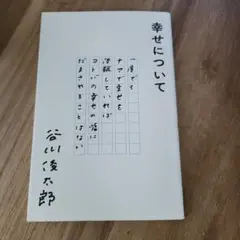 幸せについて
一度でも
ナマで幸せを
経験していれば
コトバの幸せの嘘に
だまされることはない
谷川俊太郎